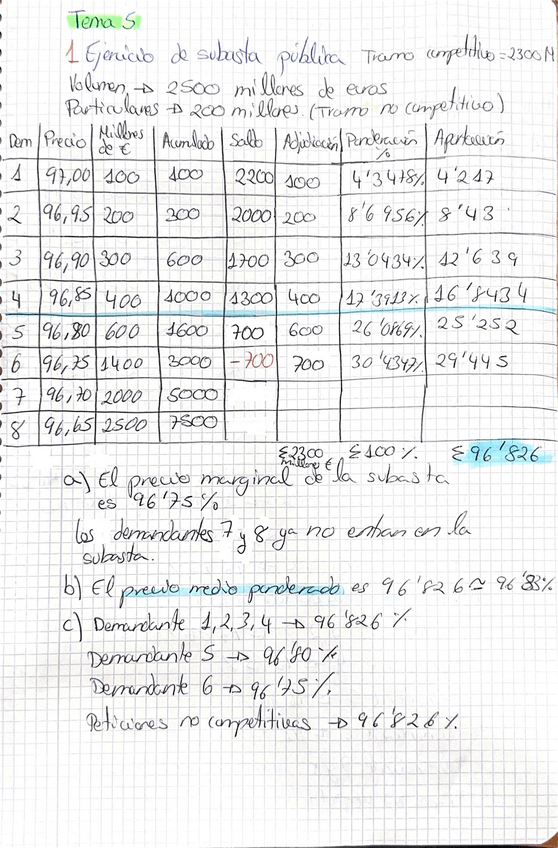 Tema 5
1 Ejercicio de subasta pública Tramo competitivo = 2300 M
Volumen → 2500 millones de euros
Particulares → 200 millones. (Tramo no competitivo)
Dem Precio Millones de € Acumulado Saldo Adjudicación Ponderación % Aportación
1 97,00 100 100 2200 100 4'3478% 4'217
2 96,95 200 300 2000 200 8'6956% 8'43
3 96,90 300 600 1700 300 13'0434% 12'639
4 96,85 400 1000 1300 400 17'3913% 16'8434
5 96,80 600 1600 700 600 26'0869% 25'252
6 96,75 1400 3000 -700 700 30'4347% 29'445
7 96,70 2000 5000
8 96,65 2500 7500
Σ2300 millones € Σ100%. Σ96'826
a) El precio marginal de la subasta
es 96'75%
Los demandantes 7 y 8 ya no entran en la
subasta.
b) El precio medio ponderado es 96'826 ≃ 96'83%
c) Demandante 1,2,3,4 → 96'826 %
Demandante 5 → 96'80 %
Demandante 6 → 96'75%.
Peticiones no competitivas → 96'826%.